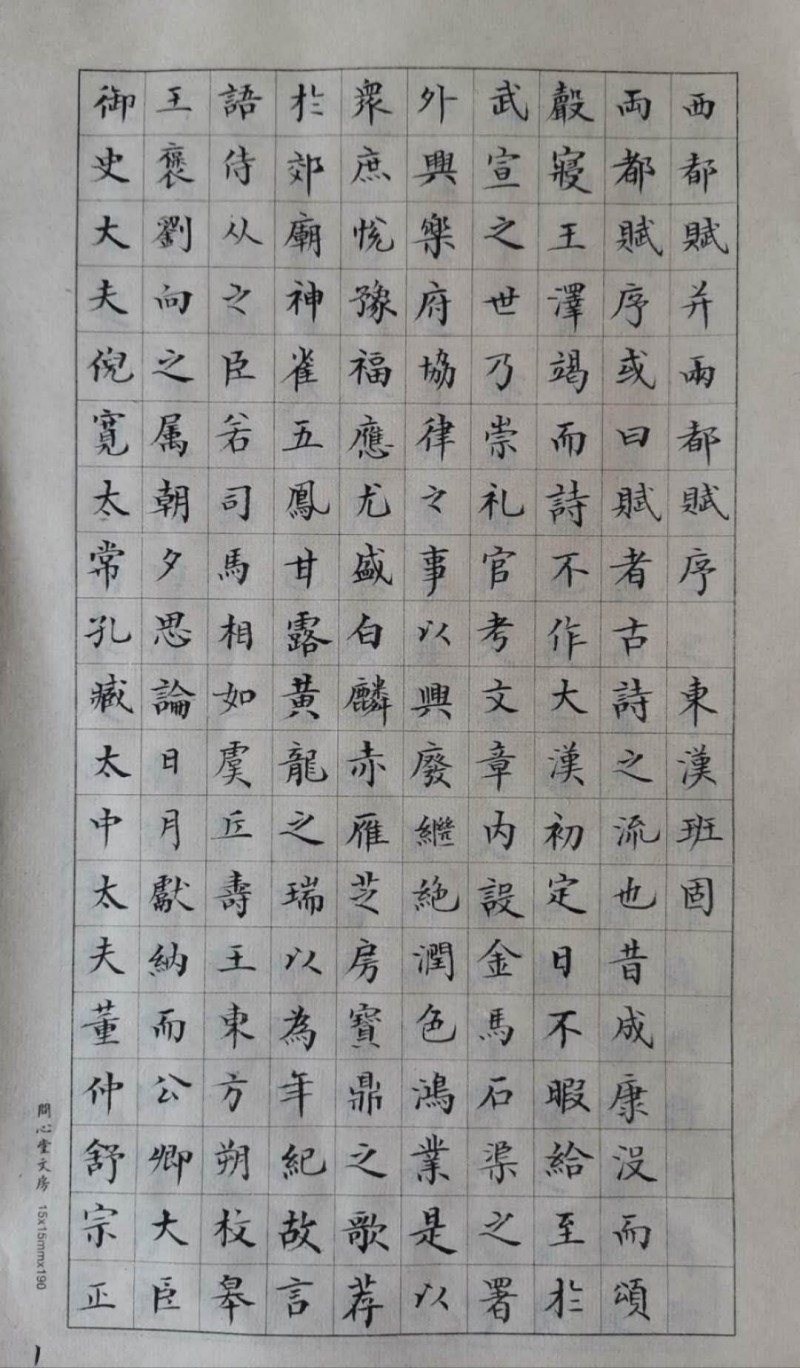 西都賦并兩都賦序 東漢班固
兩都賦序或曰賦者古詩之流也昔成康没而頌
聲寢王澤竭而詩不作大漢初定日不暇給至於
武宣之世乃崇礼官考文章内設金馬石渠之署
外興樂府協律之事以興廢繼絶潤色鴻業是以
衆庶悅豫福應尤盛白麟赤雁芝房寶鼎之歌荐
於郊廟神雀五鳳甘露黃龍之瑞以為年紀故言
語侍从之臣若司馬相如虞丘壽王東方朔枚皋
王褒劉向之属朝夕思論日月獻納而公卿大臣
御史大夫倪寬太常孔臧太中太夫董仲舒宗正
問心堂文房 15x15mmx190
1